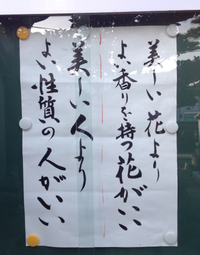 美しい花より
よい香りを持つ花がいい
美しい人より
よい性質の人がいい